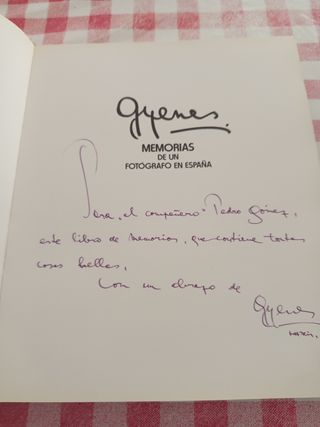 Gyenes.
MEMORIAS
DE UN
FOTÓGRAFO EN ESPAÑA
Para el compañero Pedro Gómez,
este libro de Memorias, que contiene tantas
cosas bellas,
Con un abrazo de
Gyenes